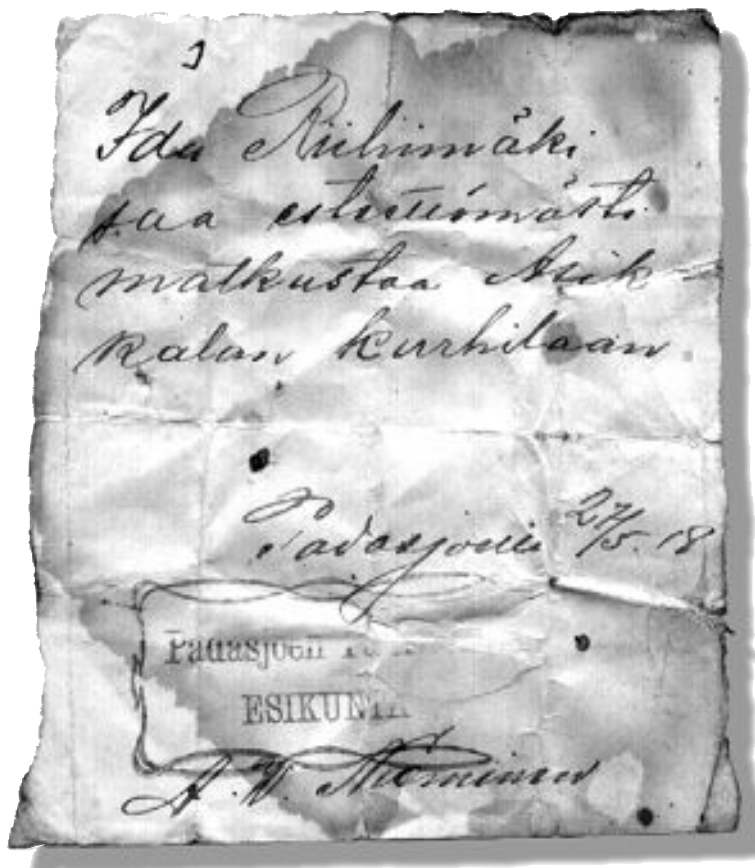 Ida Riihimäki
saa esteettömästi
matkustaa Asik-
kalan Kurhilaan
Padasjoella 27/5.18
Padasjoen
ESIKUNTA
A. W. Nieminen